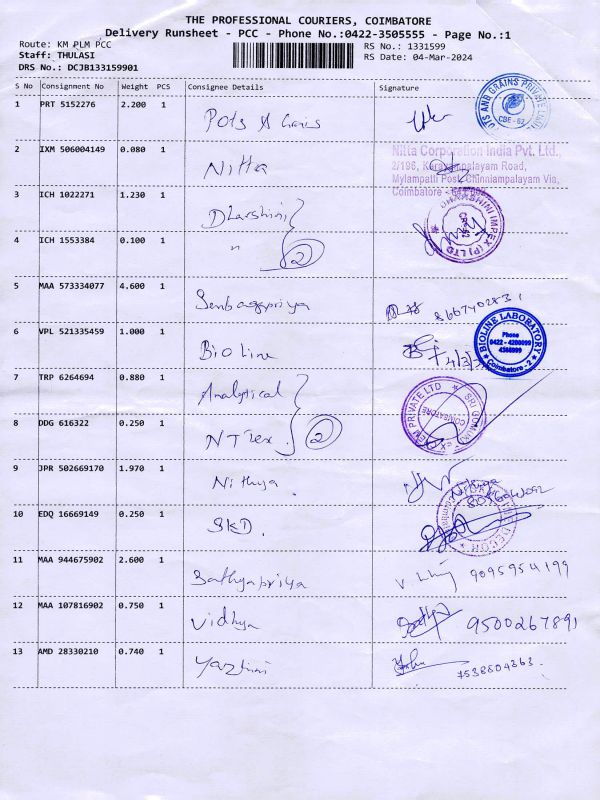 THE PROFESSIONAL COURIERS, COIMBATORE
Delivery Runsheet - PCC - Phone No.:0422-3505555 - Page No.:1
Route: KM PLM PCC RS No.: 1331599
Staff: THULASI RS Date: 04-Mar-2024
DRS No.: DCJB133159901
S No Consignment No Weight PCS Consignee Details Signature
1 PRT 5152276 2.200 1 Pots & Grains
CBE - 63
2 IXM 506004149 0.080 1 Nitta
Nitta Corporation India Pvt. Ltd.,
2/196, Karayampalayam Road,
Mylampatti Post, Chinniampalayam Via,
Coimbatore
3 ICH 1022271 1.230 1 Dharshini
DHARSHINI IMPEX (P) LTD
4 ICH 1553384 0.100 1 " 2
5 MAA 573334077 4.600 1 Senbagapriya
6 VPL 521335459 1.000 1 Bioline
BIOLINE LABORATORY
Phone
0422 - 4208099
4368999
Coimbatore - 2
7 TRP 6264694 0.880 1 Analytical
PRIVATE LTD
COIMBATORE
8 DDG 616322 0.250 1 NTex. 2
9 JPR 502669170 1.970 1 Nithya
Nithya
10 EDQ 16669149 0.250 1 SKD.
DECOR
11 MAA 944675902 2.600 1 Sathyapriya 9095954199
12 MAA 107816902 0.750 1 Vidhya 9500267891
13 AMD 28330210 0.740 1 Yazhini 7538804363.